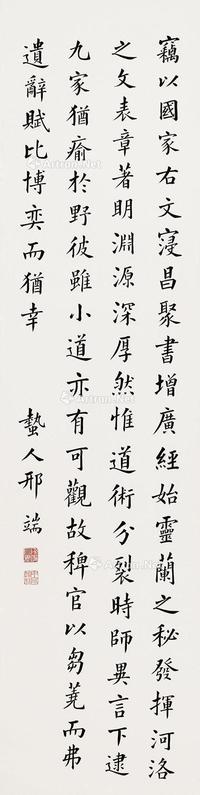 竊以國家右文寖昌聚書增廣經始靈蘭之秘發揮河洛
之文表章著明淵源深厚然惟道術分裂時師異言下逮
九家猶瘉於野彼雖小道亦有可觀故稗官以芻蕘而弗
遺辭賦比博奕而猶幸
蟄人邢端